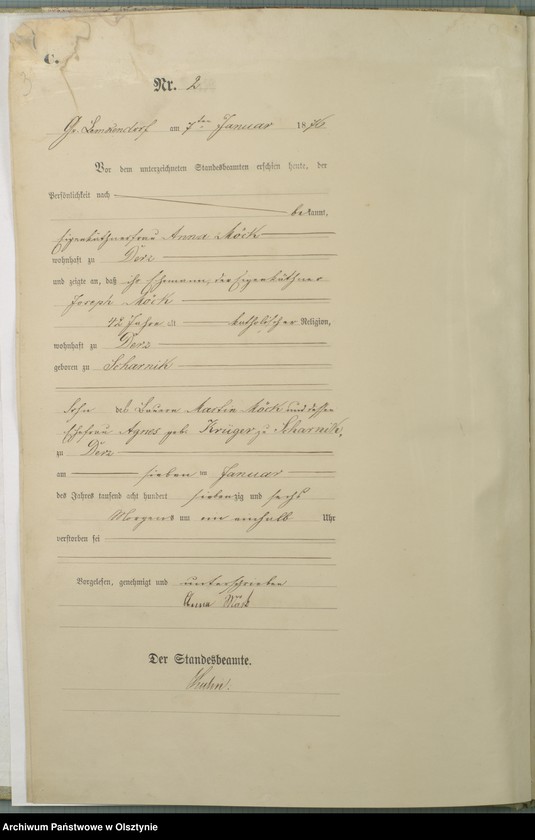 C.
3
Nr. 2
Gr. Lemkendorf am 7ten Januar 1876
Vor dem unterzeichneten Standesbeamten erschien heute, der
Persönlichkeit nach
bekannt,
Eigenkäthnerfrau Anna Möck
wohnhaft zu Derz
und zeigte an, daß ihr Ehemann, der Eigenkäthner
Joseph Möck
42 Jahre alt katholischer Religion,
wohnhaft zu Derz
geboren zu Scharnik
Sohn des Bauern Martin Möck und dessen
Ehefrau Agnes geb. Krüger zu Scharnik,
zu Derz
am sieben ten Januar
des Jahres tausend acht hundert siebenzig und sechs
Morgens um ein einhalb Uhr
verstorben sei
Vorgelesen, genehmigt und unterschrieben
Anna Möck
Der Standesbeamte.
Kuhn.
Archiwum Państwowe w Olsztynie